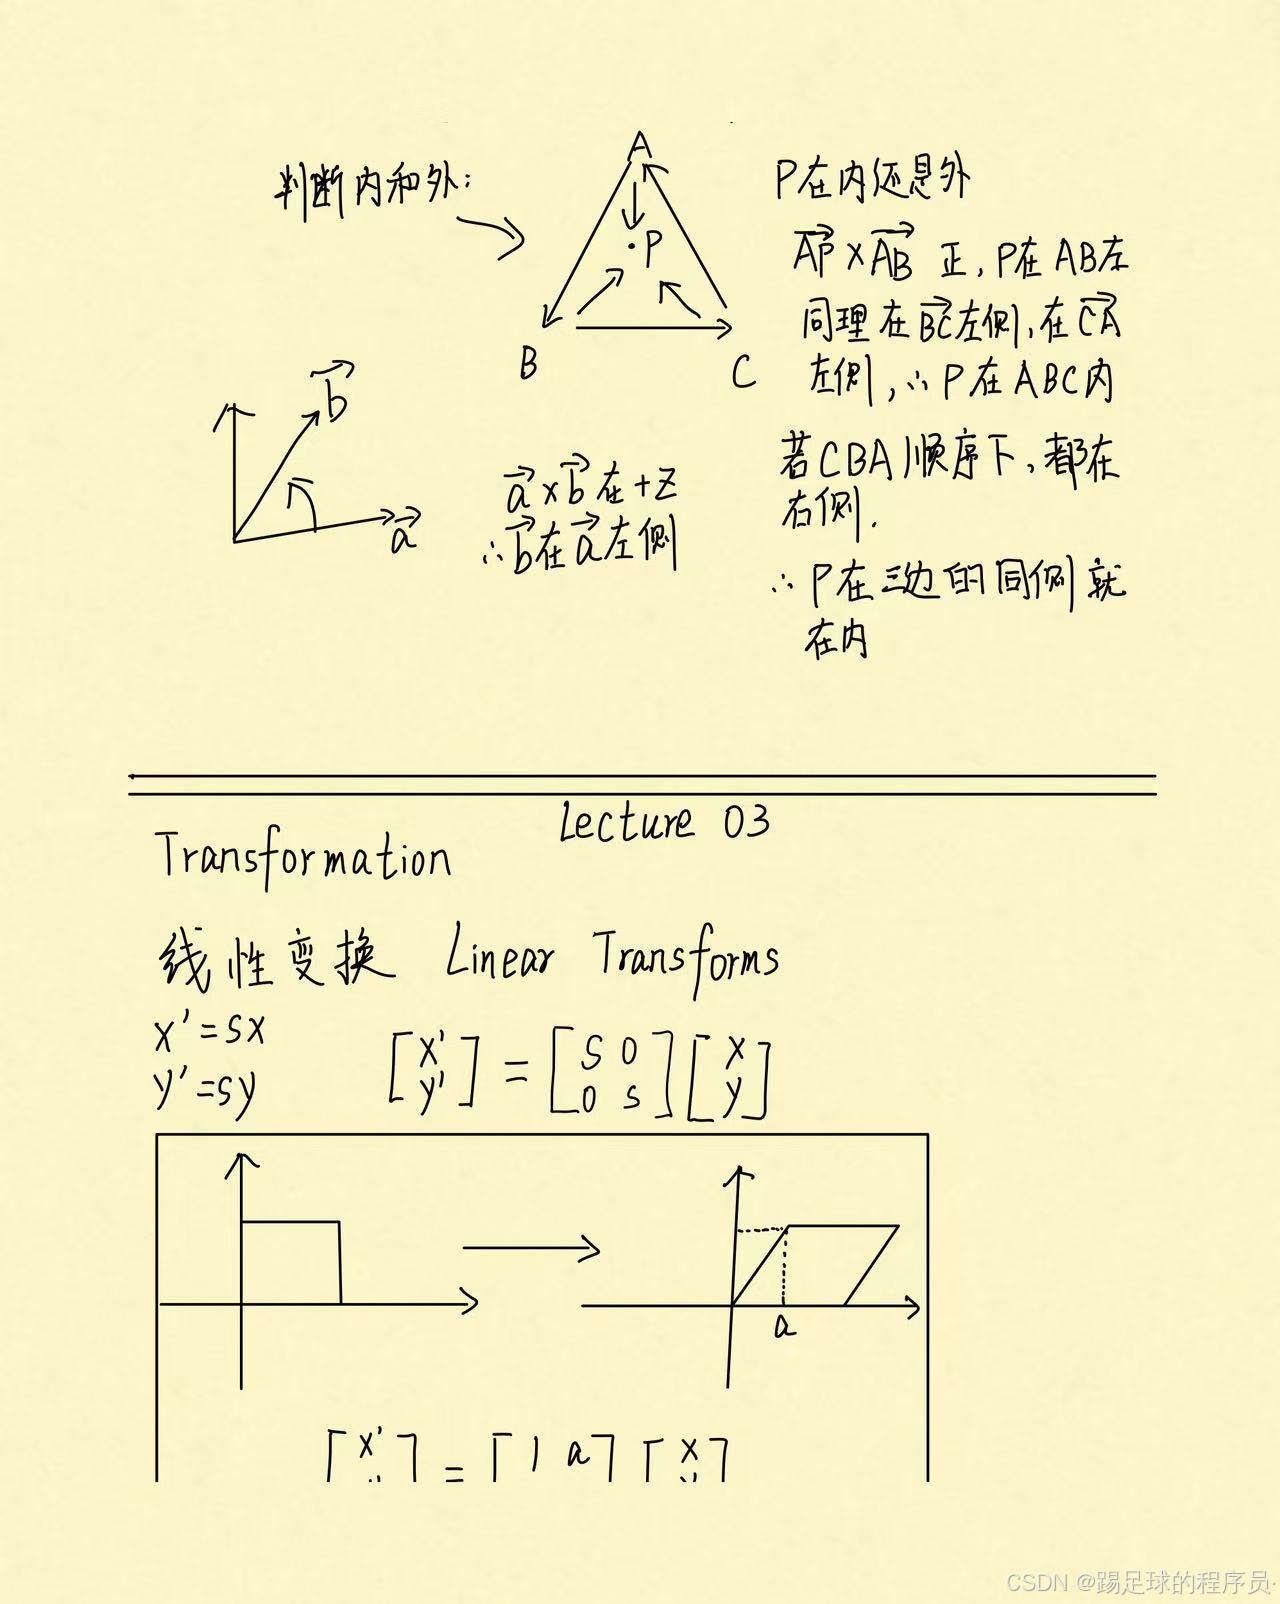 判断内和外:
A
P
B
C
P在内还是外
AP×AB 正,P在AB左
同理在BC左侧,在CA
左侧,∴P在ABC内
若CBA顺序下,都在
右侧.
∴P在三边的同侧就
在内
b
a
a×b在+Z
∴b在a左侧
Lecture 03
Transformation
线性变换 Linear Transforms
x'=sx
y'=sy
[x' y'] = [s 0 0 s] [x y]
a
[x'] = [1 a] [x]
CSDN @踢足球的程序员